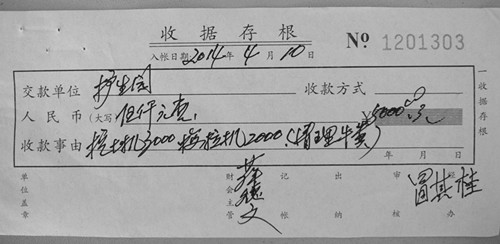 收据存根
入帐日期2014年4月10日 No 1201303
交款单位 收款方式
人民币(大写)伍仟元克 ¥5000.00元
收款事由 挖土机3000 拖拉机2000(清理牛粪)
年 月 日
单位盖章 财会主管 记帐 出纳 审核 经办
冒其桂
收据存根